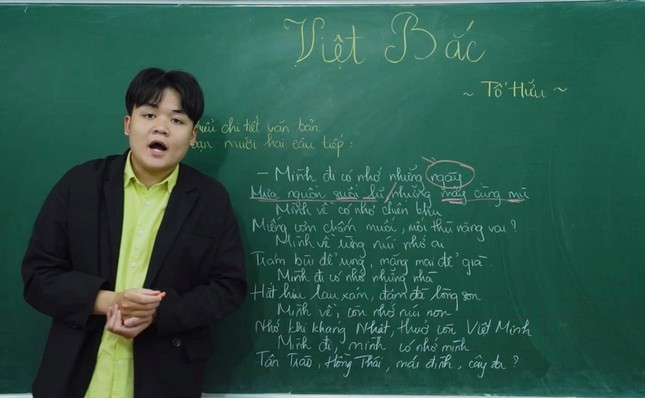 Việt Bắc
~ Tố Hữu ~
hiểu chi tiết văn bản
đoạn mười hai câu tiếp :
- Mình đi có nhớ những ngày
Mưa nguồn suối lũ / những mây cùng mù
Mình về có nhớ chiến khu
Miếng cơm chấm muối, mối thù nặng vai ?
Mình về rừng núi nhớ ai
Trám bùi để rụng, măng mai để già.
Mình đi có nhớ những nhà
Hắt hiu lau xám, đậm đà lòng son
Mình về, còn nhớ núi non
Nhớ khi kháng Nhật, thuở còn Việt Minh
Mình đi, mình có nhớ mình
Tân Trào, Hồng Thái, mái đình, cây đa ?